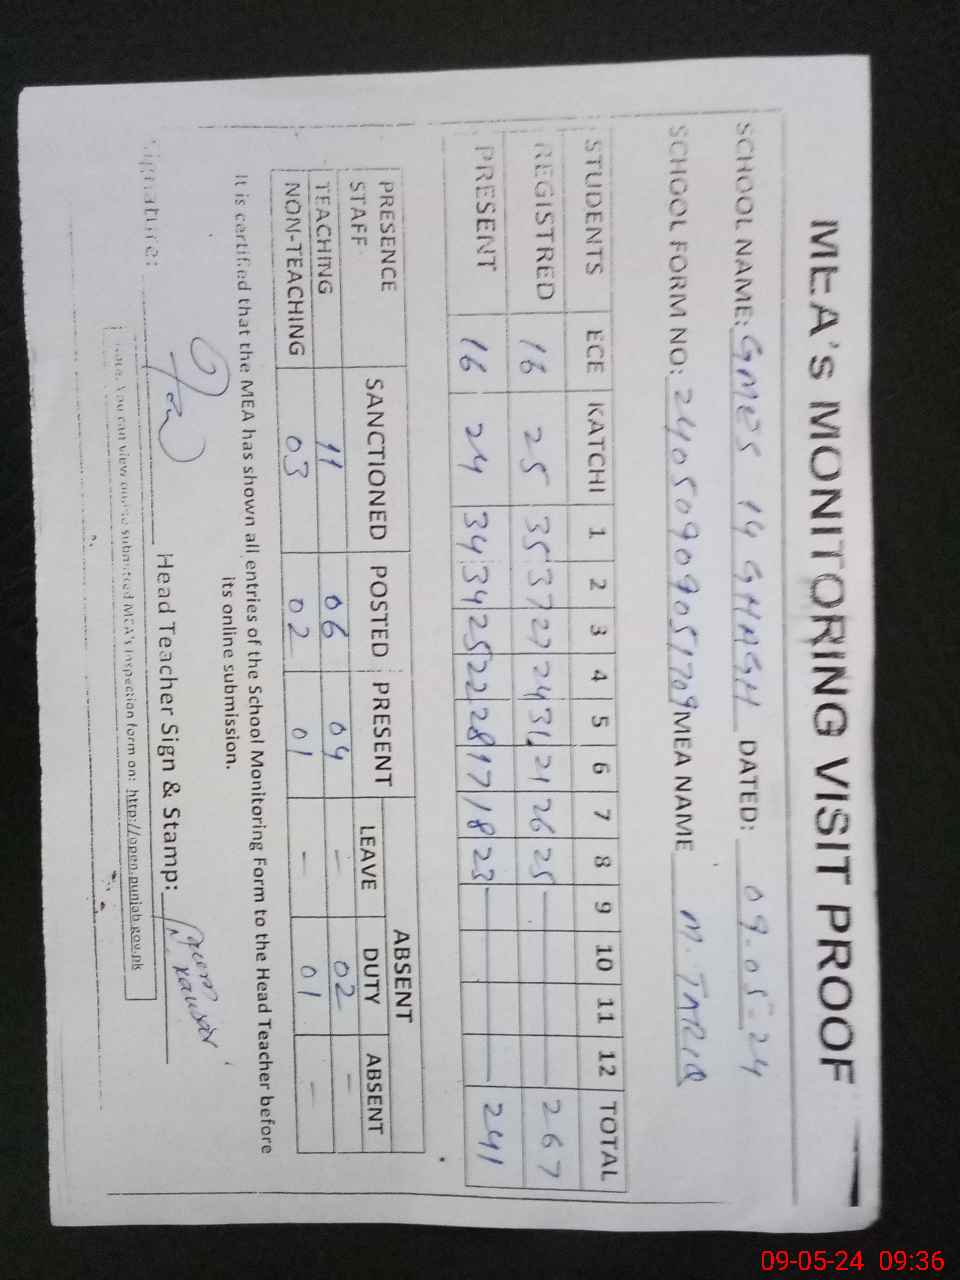 MEA'S MONITORING VISIT PROOF
SCHOOL NAME: GMES 14 GHAGH DATED: 09-05-24
SCHOOL FORM NO: 2405090905709 MEA NAME M. TARIQ
STUDENTS ECE KATCHI 1 2 3 4 5 6 7 8 9 10 11 12 TOTAL
REGISTRED 16 25 35 37 27 24 31 21 26 25 267
PRESENT 16 24 34 34 25 22 28 17 18 23 241
PRESENCE SANCTIONED POSTED PRESENT ABSENT
STAFF LEAVE DUTY ABSENT
TEACHING 11 06 04 - 02 -
NON-TEACHING 03 02 01 - 01 -
It is certified that the MEA has shown all entries of the School Monitoring Form to the Head Teacher before
its online submission.
Signature: Head Teacher Sign & Stamp: Kausar
You can view online submitted MEA's inspection form on: http://open.punjab.gov.pk
09-05-24 09:36